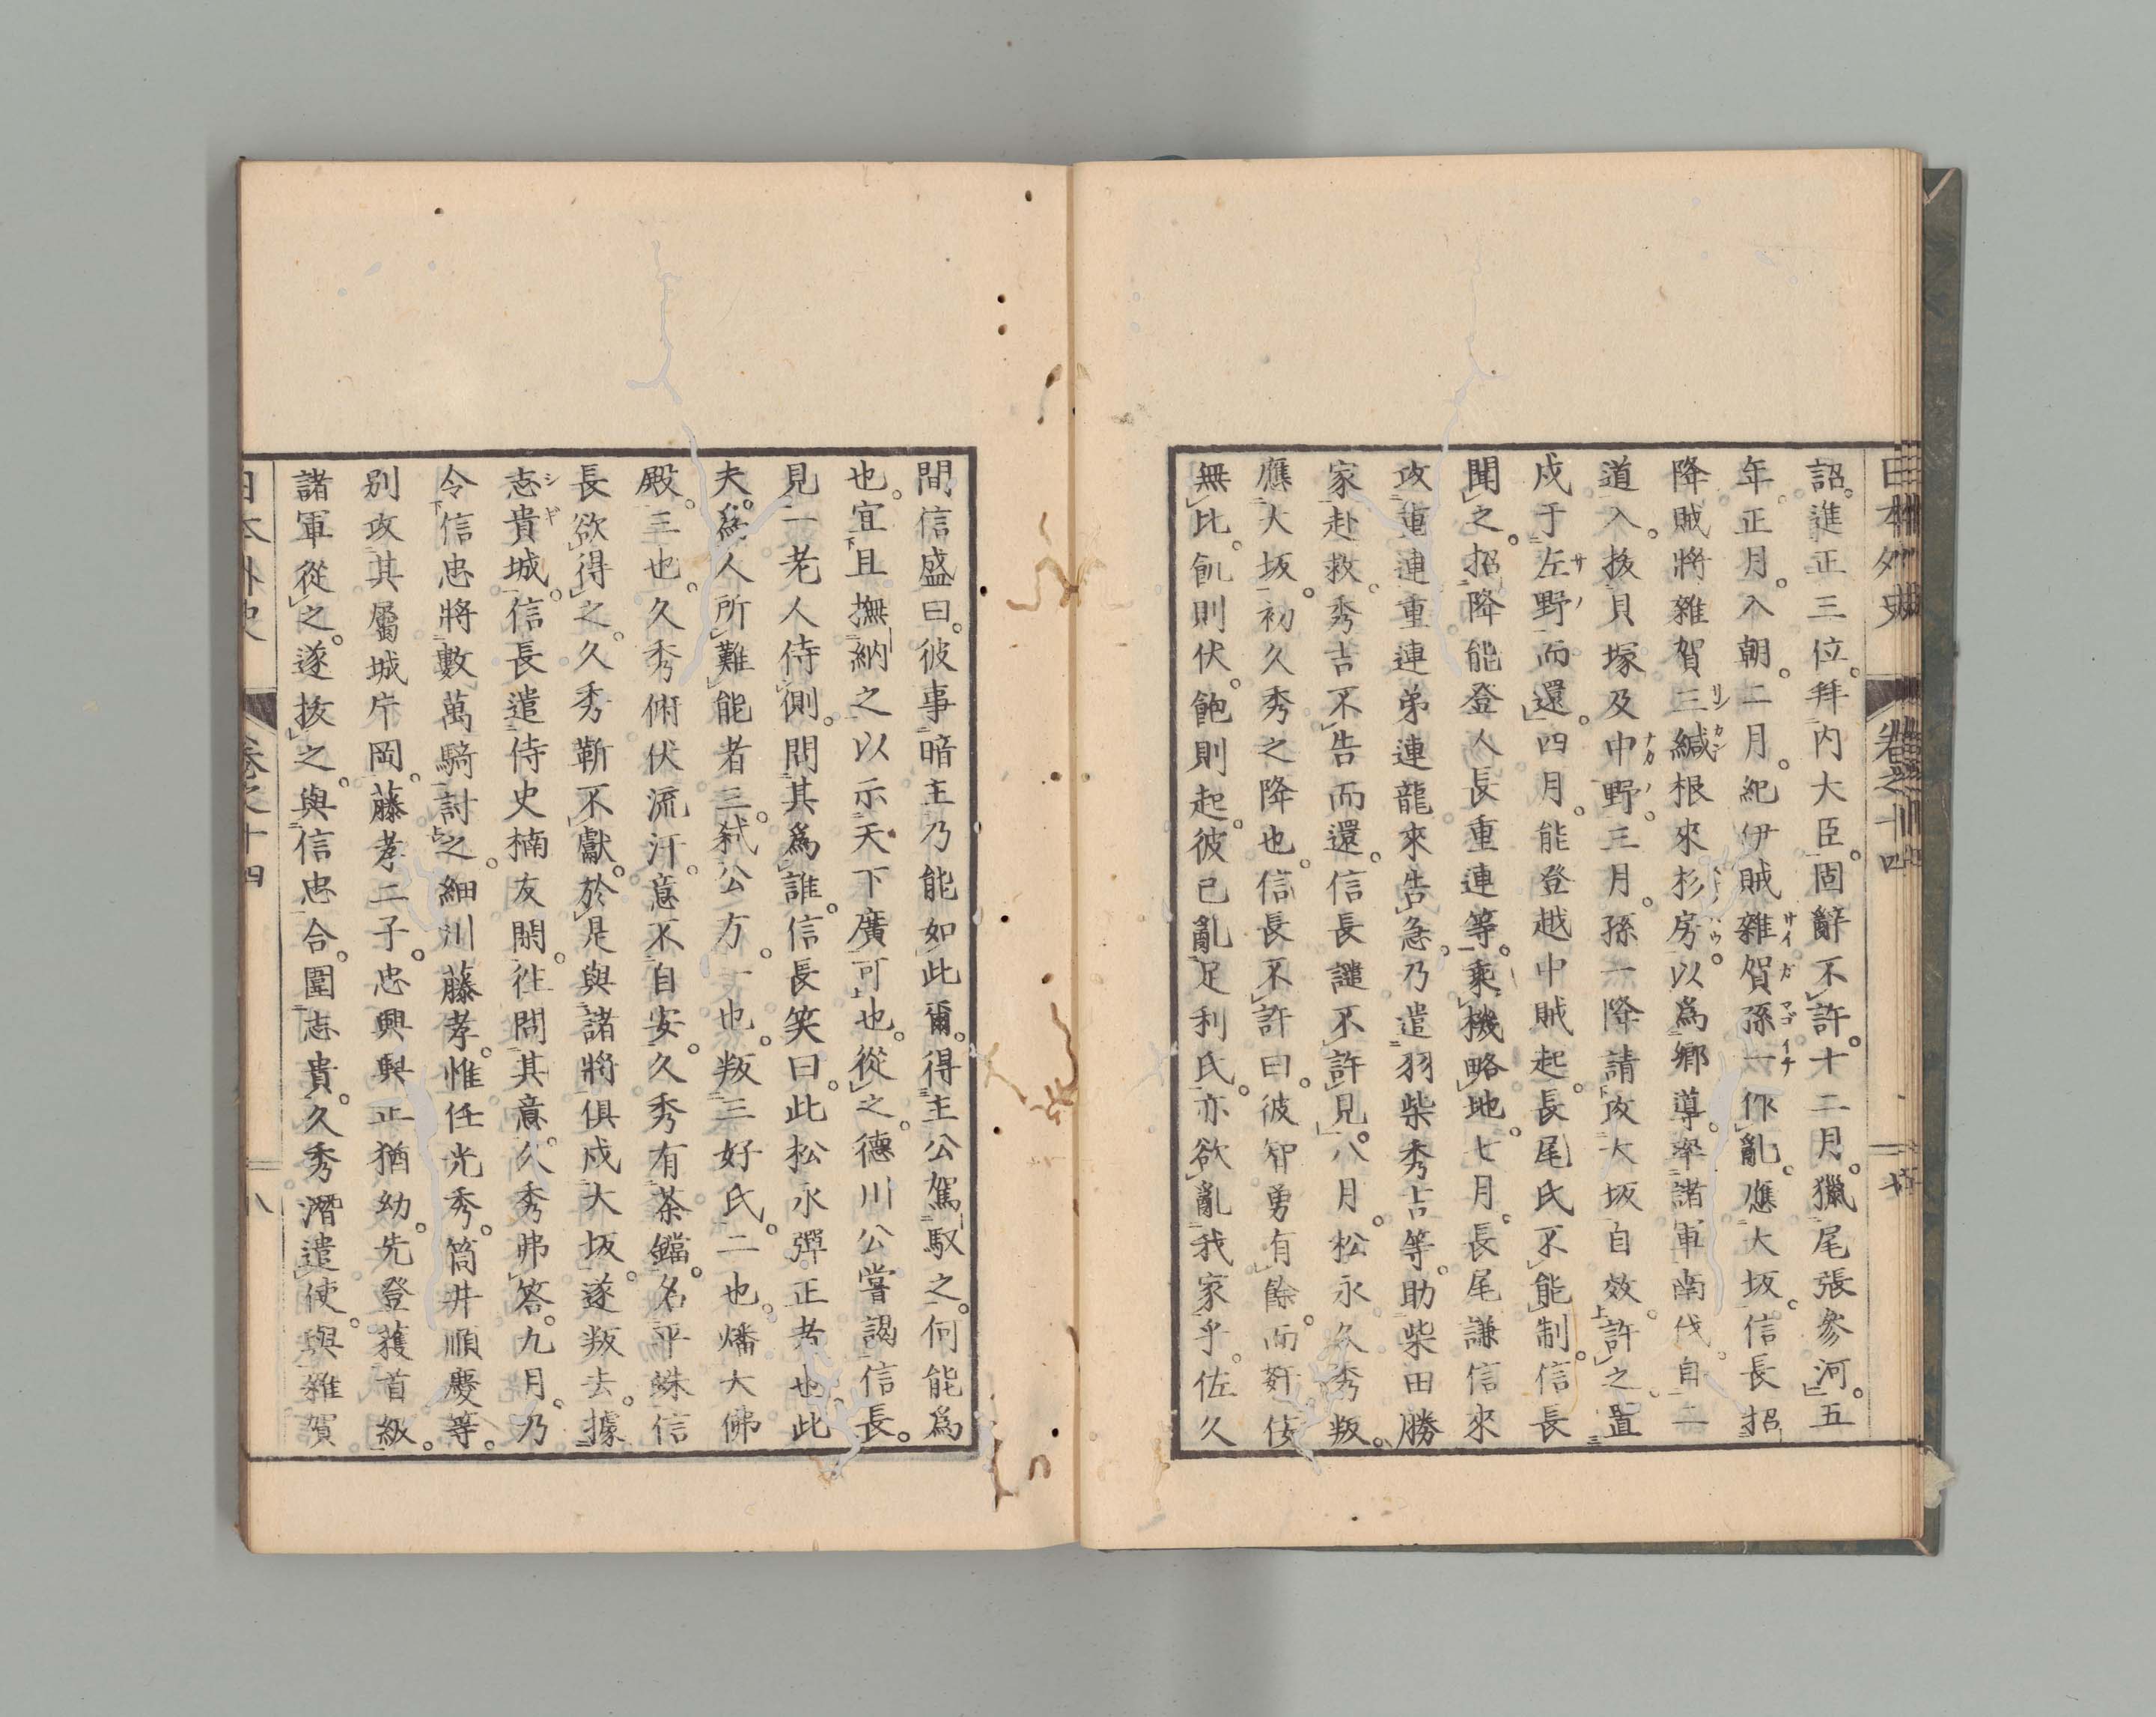 日本外史 卷之十四
詔。進正三位。拜内大臣。固辭不許。十二月。獵尾張參河。五
年。正月。入朝。二月。紀伊賊雜賀孫一作亂。應大坂。信長招
降賊將雜賀三緘根來杉房。以爲郷導。率諸軍南伐。自二
道入。拔貝塚及中野。三月。孫一降請攻大坂自效。許之。置
戍于左野而還。四月。能登越中賊起。長尾氏不能制。信長
聞之。招降能登人長重連等。乘機略地。七月。長尾謙信來
攻重連。重連弟連龍來告急。乃遣羽柴秀吉等。助柴田勝
家赴救。秀吉不告而還。信長譴不許見。八月。松永久秀叛。
應大坂。初久秀之降也。信長不許曰。彼智勇有餘。而姧佞
無比。飢則伏。飽則起。彼已亂足利氏。亦欲亂我家乎。佐久
間信盛曰。彼事暗主乃能如此爾。得主公駕馭之。何能爲
也。宜且撫納之以示天下廣可也。從之。德川公嘗謁信長。
見一老人侍側。問其爲誰。信長笑曰。此松永彈正者也。此
夫。爲人所難能者三。弑公方。一也。叛三好氏。二也。燔大佛
殿。三也。久秀俯伏流汗。意不自安。久秀有茶鐺。名平蛛信
長欲得之。久秀靳不獻。於是與諸將倶戍大坂。遂叛去。據
志貴城。信長遣侍史楠友閑。往問其意。久秀弗答。九月。乃
令信忠將數萬騎討之。細川藤孝。惟任光秀。筒井順慶等。
別攻其屬城片岡。藤孝二子。忠興興正猶幼。先登獲首級。
諸軍從之。遂拔之。與信忠合。圍志貴。久秀潛遣使。與雜賀
日本外史 卷之十四 八